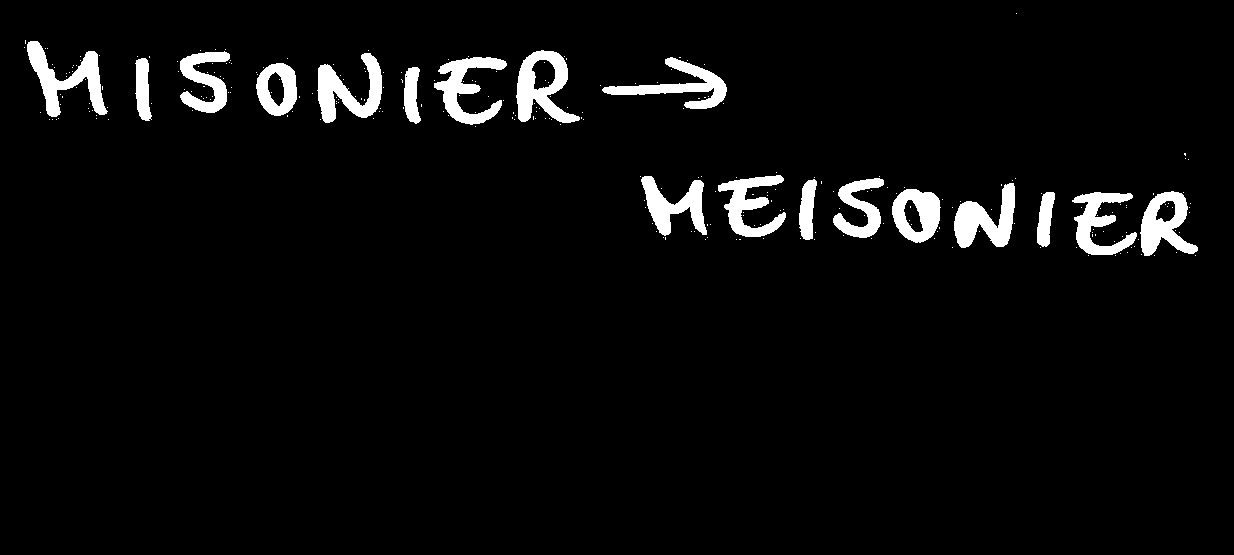 MISONIER →
MEISONIER